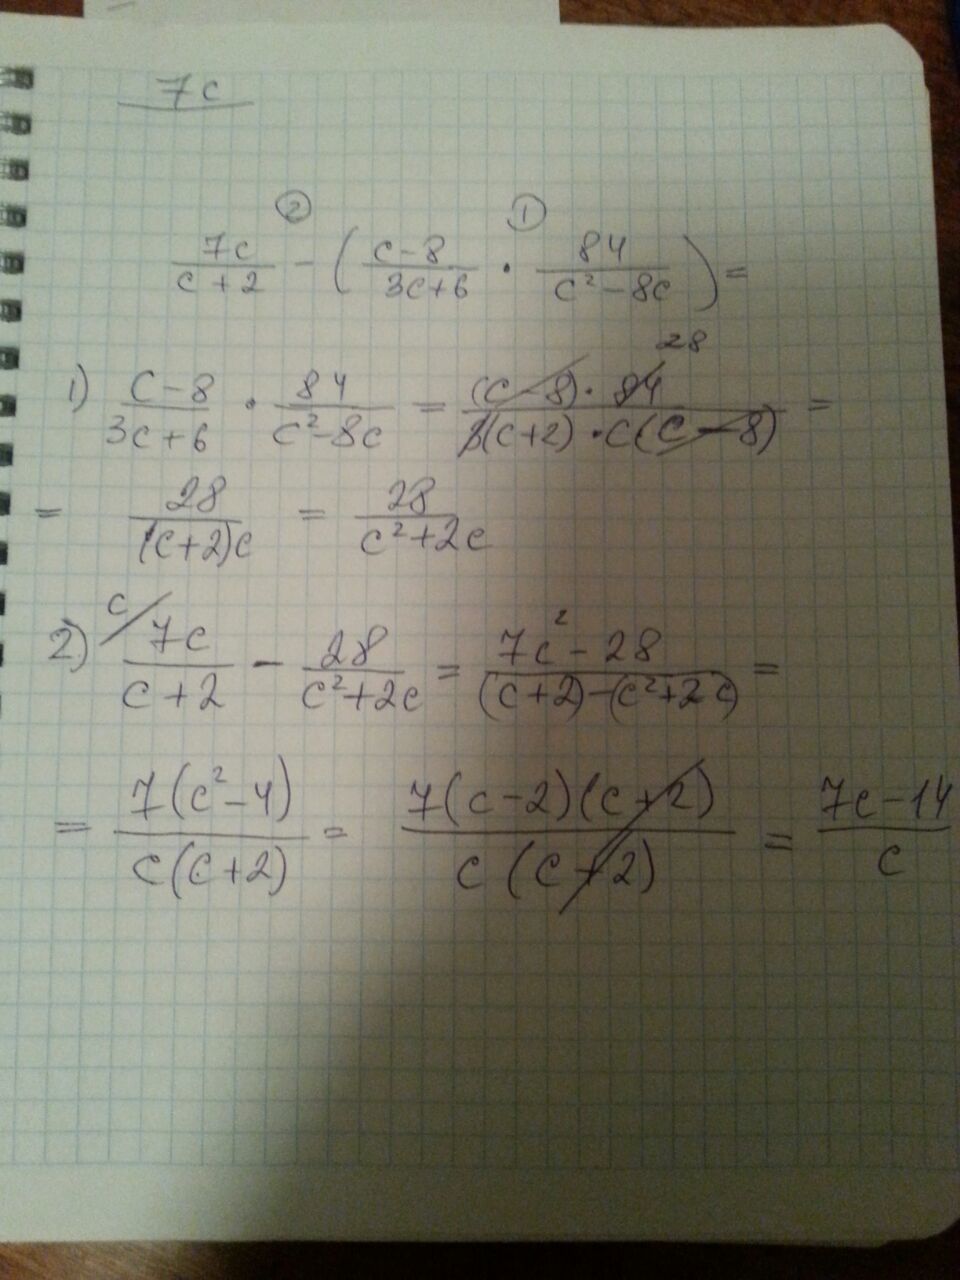 7c
② ①
7c/(c+2) - ((c-8)/(3c+6) · 84/(c²-8c)) =
28
1) (c-8)/(3c+6) · 84/(c²-8c) = ((c-8)·84)/(3(c+2)·c(c-8)) =
= 28/((c+2)c) = 28/(c²+2c)
c/
2) 7c/(c+2) - 28/(c²+2c) = (7c²-28)/((c+2)-(c²+2c)) =
= 7(c²-4)/(c(c+2)) = 7(c-2)(c+2)/(c(c+2)) = (7c-14)/c